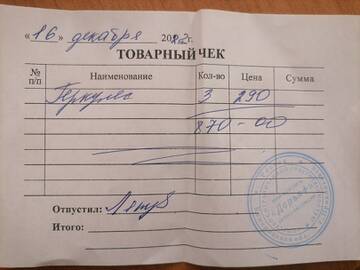 « 16 » декабря 2022г.
ТОВАРНЫЙ ЧЕК
№ п/п Наименование Кол-во Цена Сумма
Геркулес 3 290
870-00
Отпустил:
Итого: